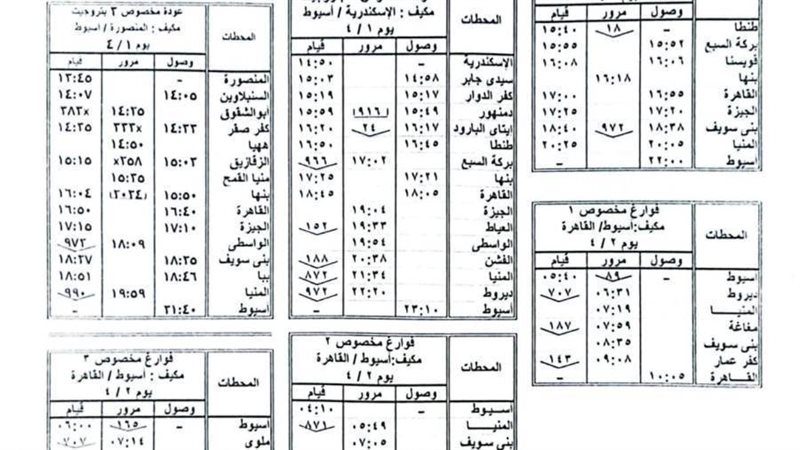 المحطات وصول مرور قيام
طنطا – ١٨ ١٥:٤٠
بركة السبع ١٥:٥٢ ١٥:٥٥
قويسنا ١٦:٠٦ ١٦:٠٨
بنها ١٦:١٨
القاهرة ١٦:٥٥ ١٧:٠٠
الجيزة ١٧:٢٠ ١٧:٢٥
بنى سويف ١٨:٣٨ ٩٧٢ ١٨:٤٠
المنيا ٢٠:٠٥
أسيوط ٢٢:٠٠ –
فوارغ مخصوص ١
مكيف:أسيوط/ القاهرة
يوم ٢ / ٤
المحطات وصول مرور قيام
أسيوط – ٨٩ ٠٥:٤٠
ديروط ٠٦:٣١ ٧٠٧
المنيـــا ٠٧:١٩
مغاغة ٠٧:٥٩ ١٨٧
بنى سويف ٠٨:٣٥
كفر عمار ٠٩:٠٨ ١٤٣
القـاهرة ١٠:٠٥ –
مكيف : الإسكندرية / أسيوط
يوم ١ / ٤
المحطات وصول مرور قيام
الإسكندرية – ١٤:٥٠
سيدى جابر ١٤:٥٨ ١٥:٠٣
كفر الدوار ١٥:١٧ ١٥:١٩
دمنهور ١٥:٤٩ (٩١٦) ١٥:٥٩
ايتاى البارود ١٦:١٧ ٢٤ ١٦:٢٠
طنطا ١٦:٤٥ ١٦:٥٠
بركة السبع ١٧:٠٢ ٩٦٦
بنها ١٧:٢١ ١٧:٢٥
القاهرة ١٨:٠٥ ١٨:٤٥
الجيزة ١٩:٠٤
العياط ١٩:٣٣ ١٥٢
الواسطى ١٩:٥٤
الفشن ٢٠:٣٨ ١٨٨
المنيا ٢١:٣٤ ٨٧٢
ديروط ٢٢:٢٠ ٩٧٢
أسيوط ٢٣:١٠ –
فوارغ مخصوص ٢
مكيف:أسيوط/ القاهرة
يوم ٢ / ٤
المحطات وصول مرور قيام
اسـيوط – ٠٤:١٠
المنيـــا ٠٥:٤٩ ٨٧١
بنى سويف ٠٧:٠٥
عودة مخصوص ٣ بتروجيت
مكيف : المنصورة / أسيوط
يوم ١ / ٤
المحطات وصول مرور قيام
المنصورة – ١٣:٤٥
السنبلاوين ١٤:٠٥ ١٤:٠٧
أبوالشقوق ١٤:٢٥ ٣٨٣x
كفر صقر ١٤:٣٣ ٣٣٣x ١٤:٣٥
ههيا ١٤:٥٠
الزقازيق ١٥:٠٣ ٣٥٨x ١٥:١٥
منيا القمح ١٥:٣٥
بنها ١٥:٥٠ (٢٠٣٤) ١٦:٠٤
القاهرة ١٦:٤٠ ١٦:٥٠
الجيزة ١٧:١٠ ١٧:١٥
الواسطى ١٨:٠٩ ٩٧٢
بنى سويف ١٨:٢٥ ١٨:٢٧
ببا ١٨:٤٦ ١٨:٥١
المنيا ١٩:٥٩ ٩٩٠
أسيوط ٢١:٤٠ –
فوارغ مخصوص ٣
مكيف : أسيوط / القاهرة
يوم ٢ / ٤
المحطات وصول مرور قيام
اسيوط – ١٦٥ ٠٦:٠٠
ملوى ٠٧:١٤ ٧٠٧